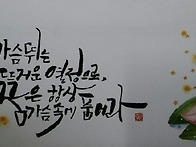 가슴뛰는
뜨거운 열정으로,
꿈은 항상
가슴속에 품어라